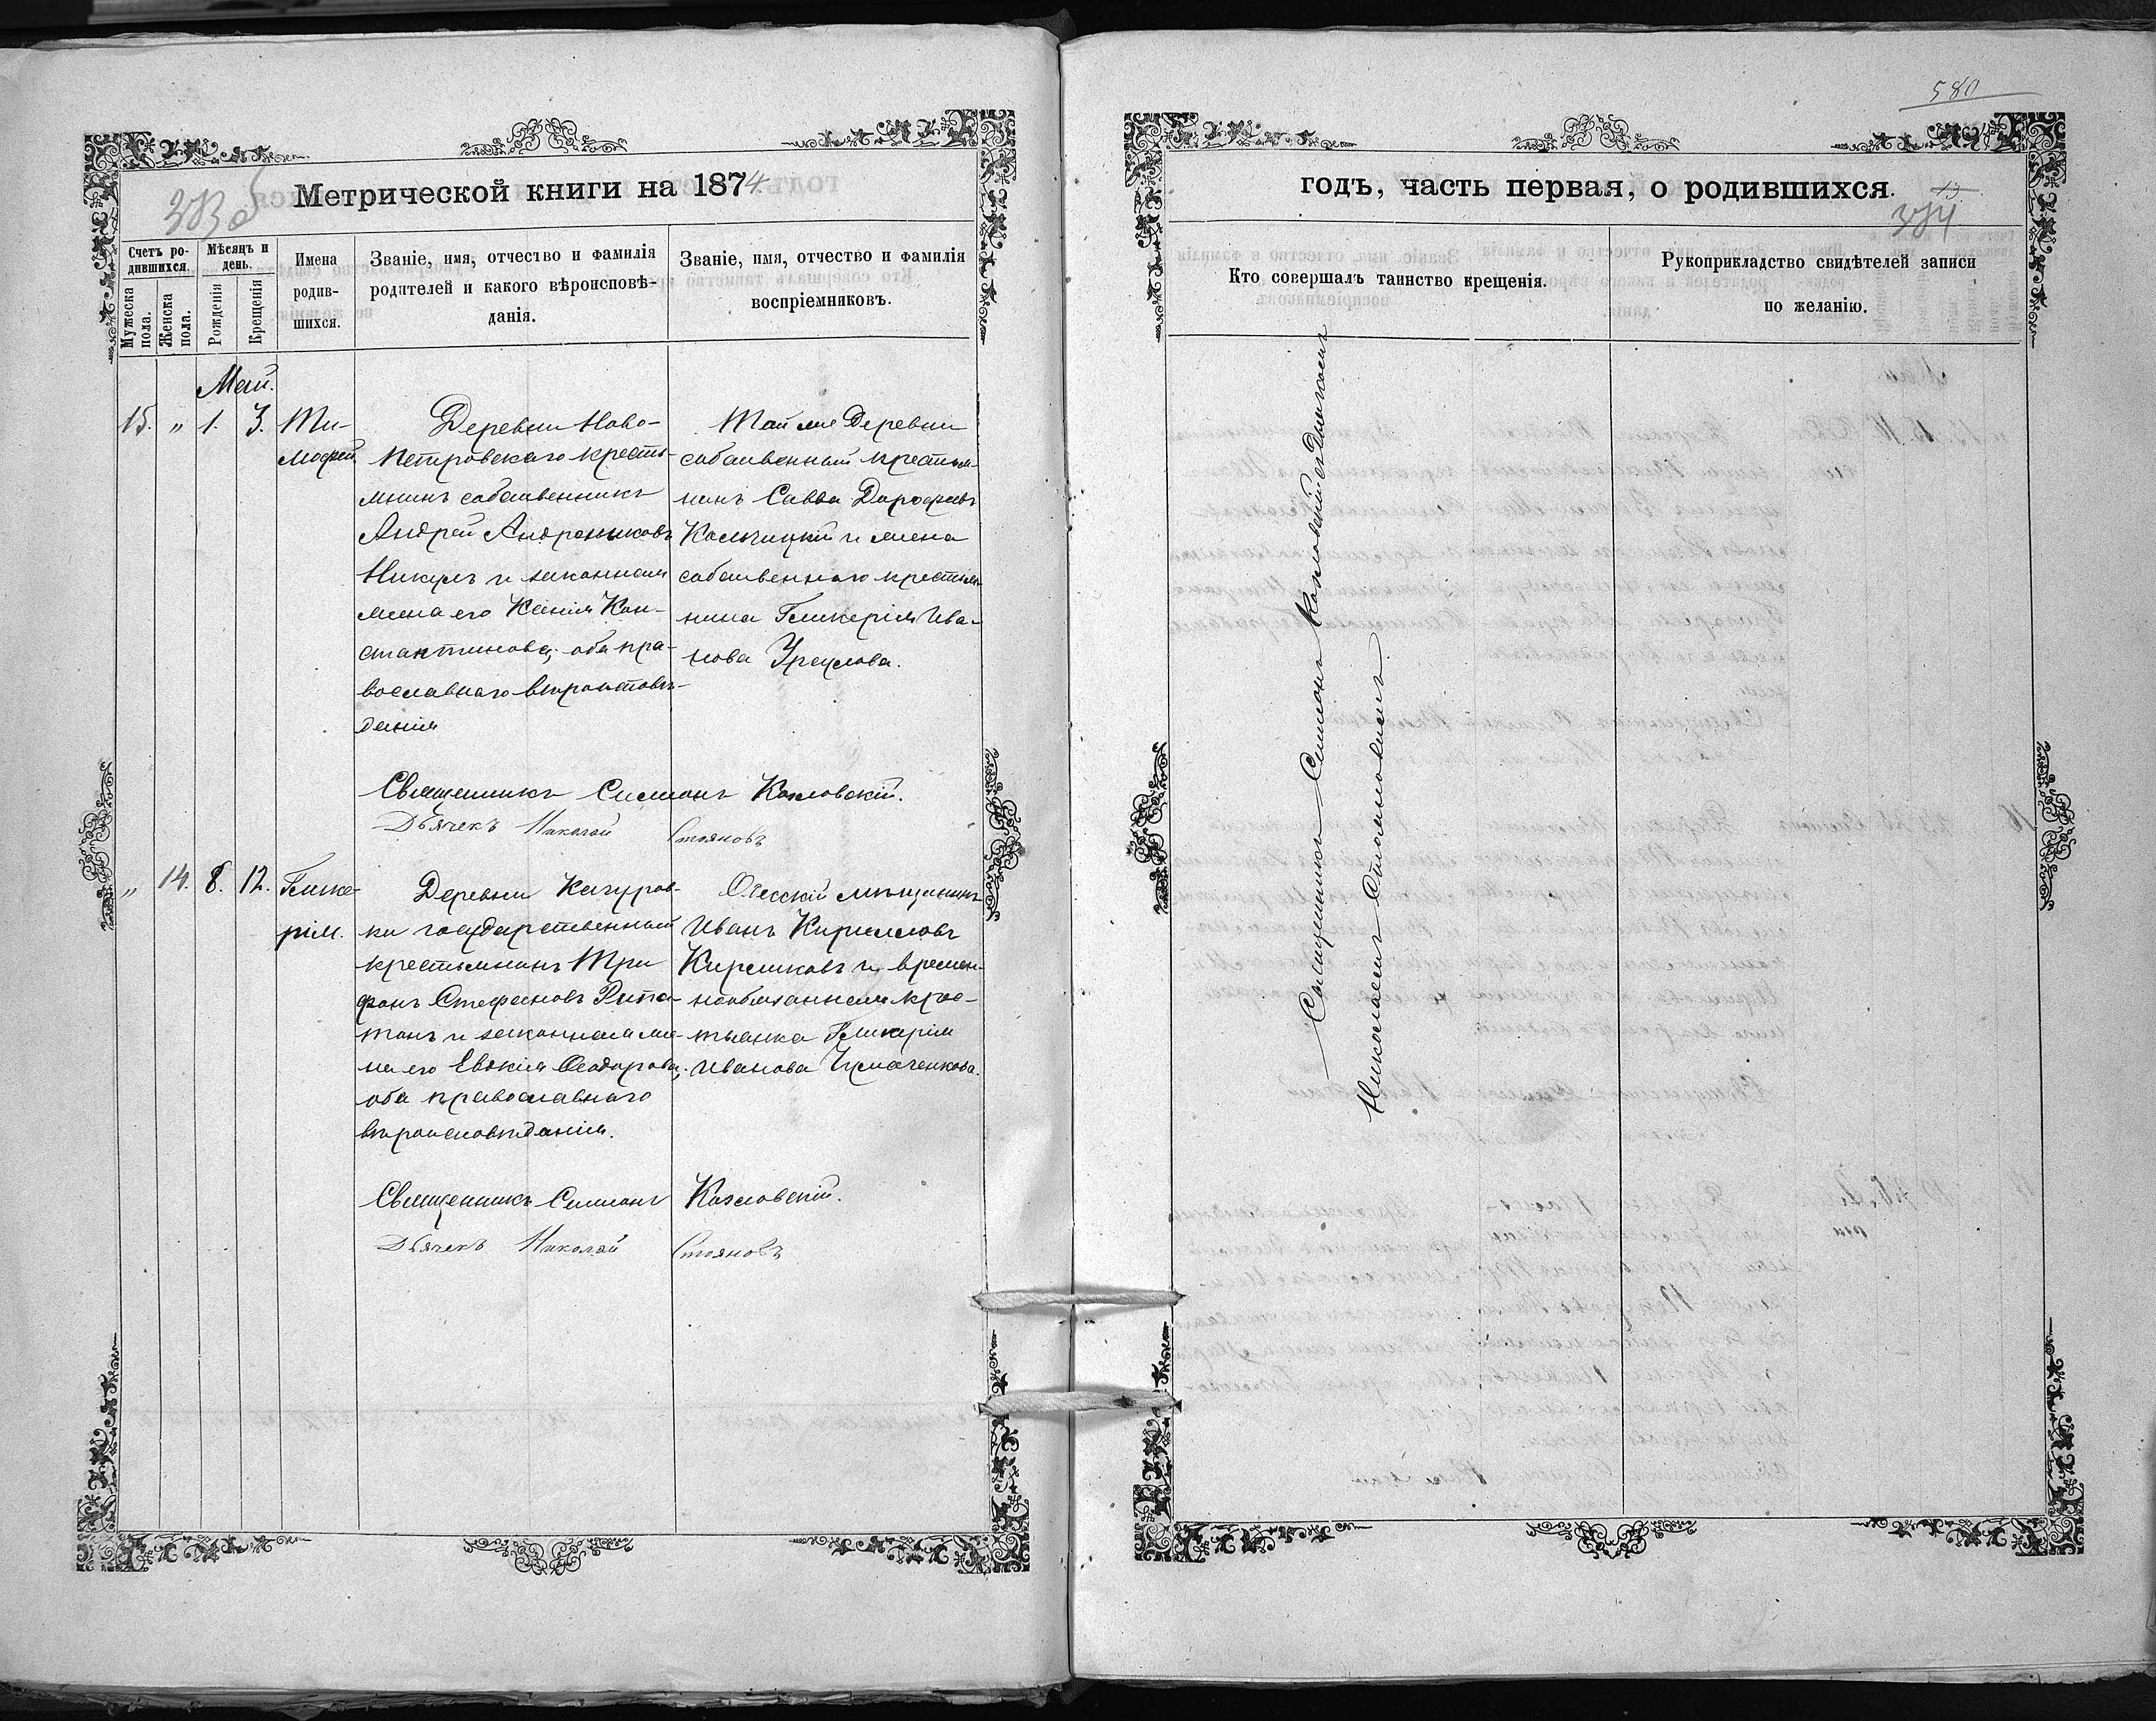 580
Метрической книги на 1874
Счетъ ро-
дившихся.
Мѣсяцъ и
день.
Мужеска
пола.
Женска
пола.
Рожденія
Крещенія
Имена
родив-
шихся.
Званіе, имя, отчество и фамилія
родителей и какого вѣроисповѣ-
данія.
Званіе, имя, отчество и фамилія
воспріемниковъ.
Май.
15. „ 1. 3.
Ти-
мофей.
Деревни Ново-
петровскаго кресть-
янинъ собственникъ
Андрей Андрониковъ
и законная
жена его Ксенія Кон-
стантинова; оба пра-
вославнаго вѣроисповѣ-
данія
Той же Деревни
собственный крестья-
нинъ Савва Дорофеевъ
и жена
собственнаго крестья-
нина Гликерія Ива-
нова
Священникъ Симеонъ Козловскій.
Дьячекъ Николай Стояновъ
„ 14. 8. 12.
Глике-
рія.
Деревни Качуров-
ки государственный
крестьянинъ Три-
фонъ Стефановъ Рипа-
и законная же-
на его Евдокія Феодорова;
оба православнаго
вѣроисповѣданія.
Одесскій мѣщанинъ
Иванъ Кирилловъ
и времен-
нообязанная крес-
тьянка Гликерія
Иванова Чумаченкова.
Священникъ Симеонъ Козловскій.
Дьячекъ Николай Стояновъ
годъ, часть первая, о родившихся.
13.
374
Кто совершалъ таинство крещенія.
Рукоприкладство свидѣтелей записи
по желанію.
Священникъ Симеонъ Козловскій съ Дьячкомъ
Николаемъ